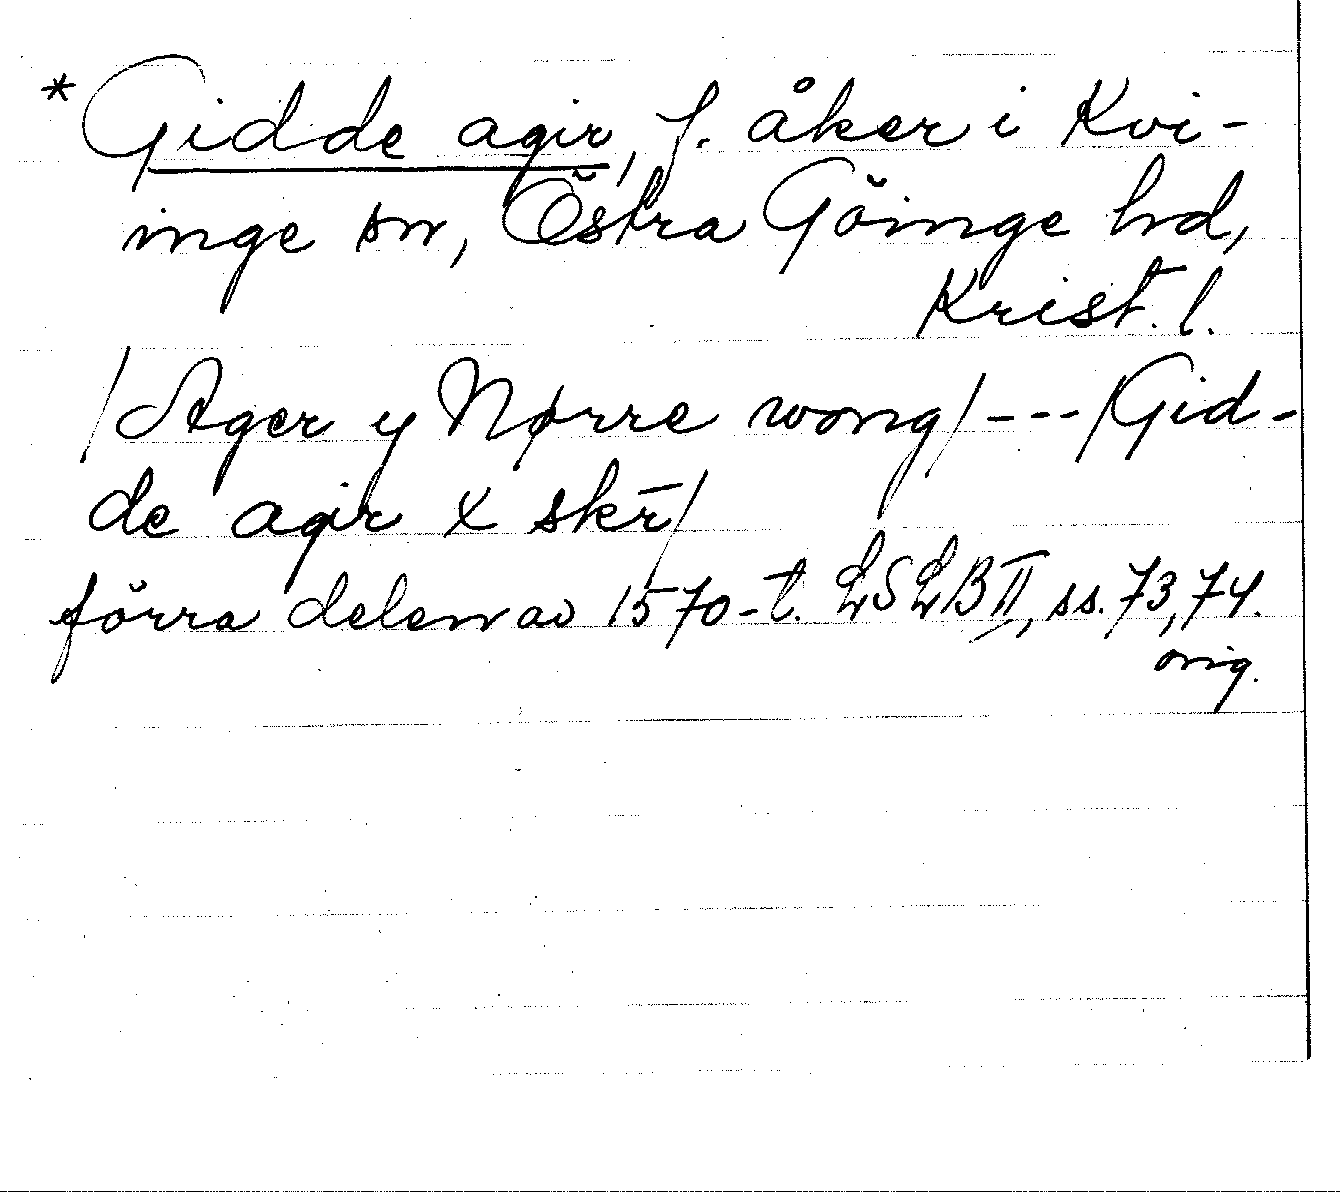 * Gidde agir, f. åker i Kvi-
inge sn, Östra Göinge hd,
Krist. l.
/Ager y Nørre wong/---/Gid-
de agir x skr̄/
förra delen av 1570-t. LSLB II, ss. 73, 74.
orig.